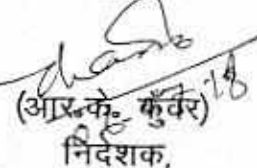 (आर.के. कुँवर)
निदेशक,